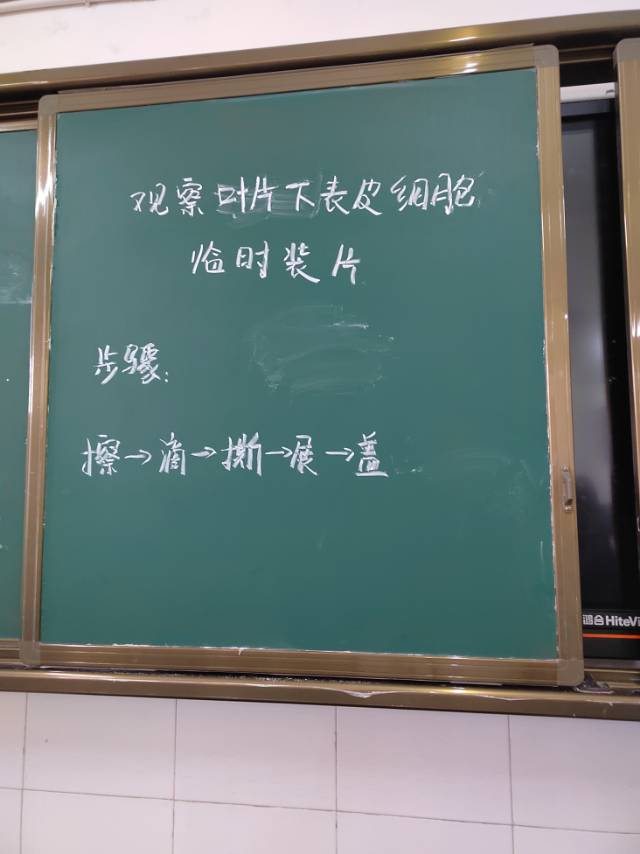 观察叶片下表皮细胞
临时装片
步骤:
擦→滴→撕→展→盖
鸿合HiteVi